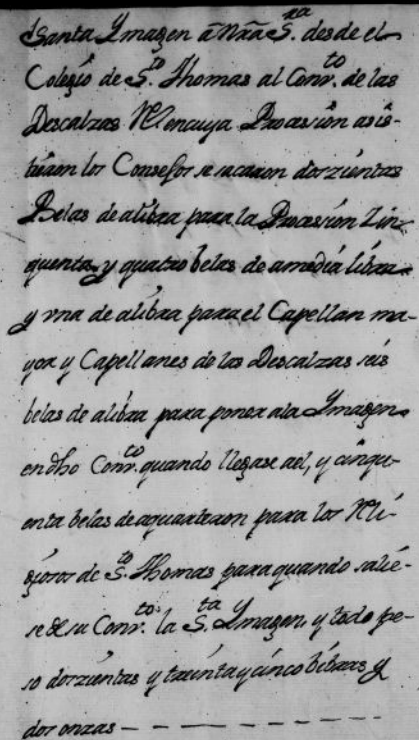 Santa Ymagen a Nrã S.ra desde el
Colegio de S.to Thomas al Conv.to de las
Descalzas Rl en cuya Procesion asis-
tieron los Consejos se sacaron dorzientas
Belas de alibra para la Procesion Zin-
quenta y quatro belas de amedia libra
y vna de alibra para el Capellan ma-
yor y Capellanes de las Descalzas seis
belas de alibra para poner ala Ymagen
en dho Conv.to quando llegase ael, y cinqu-
enta belas de aquarteron para los Rli-
giosos de S.to Thomas para quando salie-
se de su Conv.to la S.ta Ymagen, y todo pe-
so dorzientas y treinta y cinco libras y
dos onzas